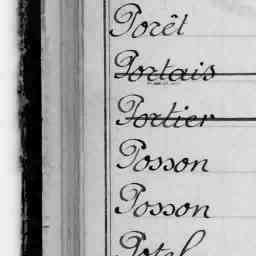 Porêt
Portais
Portier
Posson
Posson
Potel